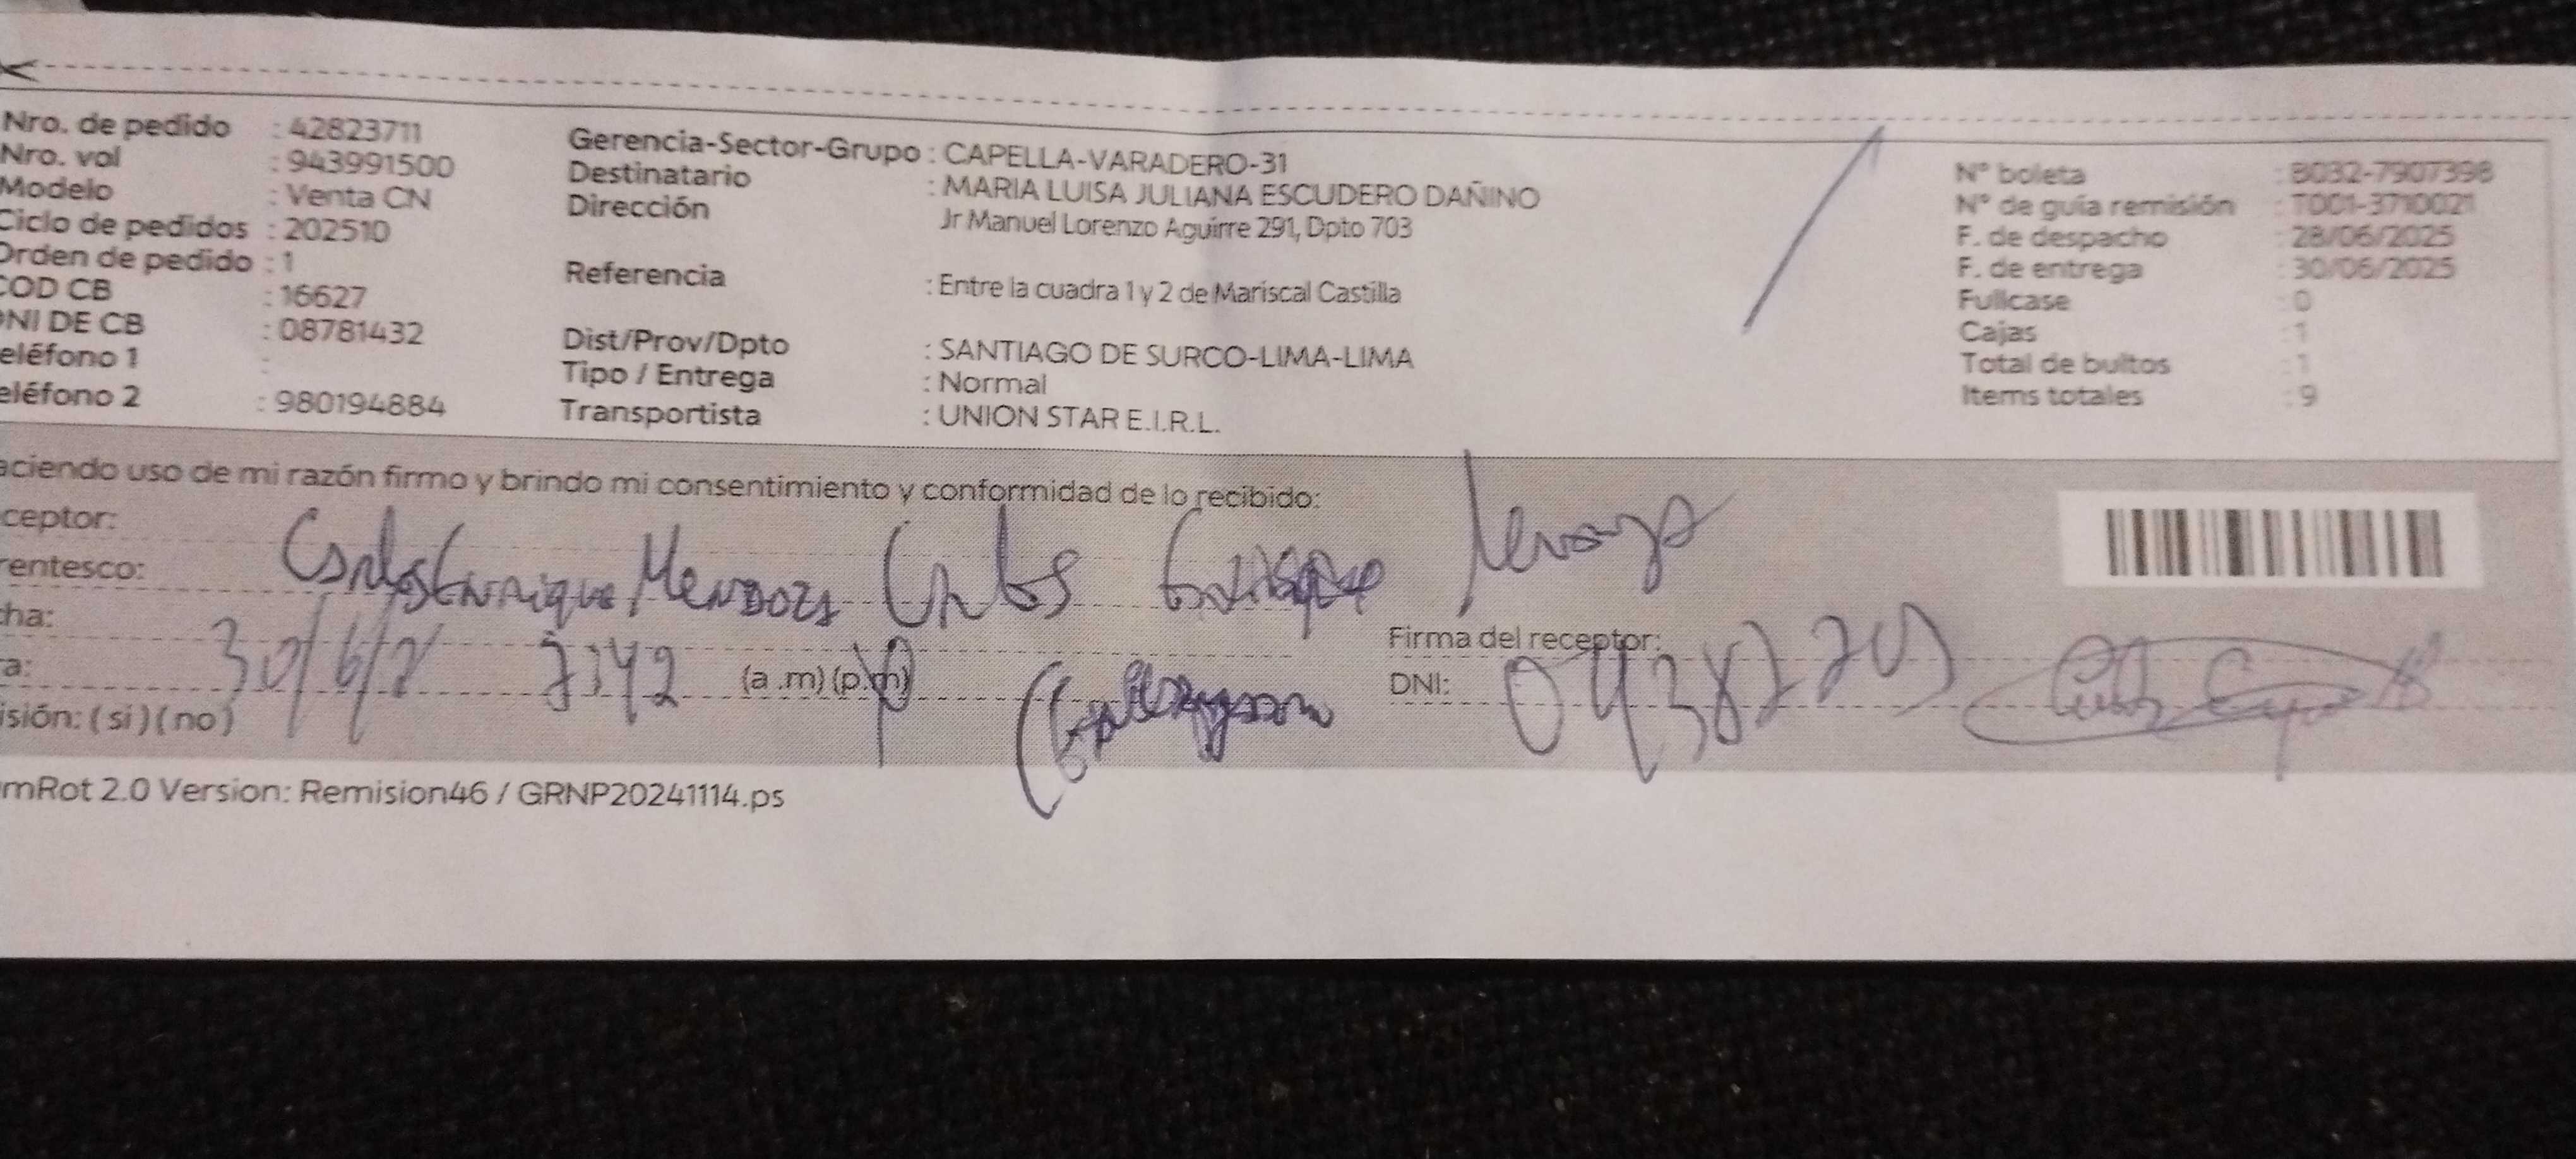 Nro. de pedido : 42823711
Nro. vol : 943991500
Modelo : Venta CN
Ciclo de pedidos : 202510
Orden de pedido : 1
COD CB : 16627
DNI DE CB : 08781432
eléfono 1 :
eléfono 2 : 980194884
Gerencia-Sector-Grupo : CAPELLA-VARADERO-31
Destinatario : MARIA LUISA JULIANA ESCUDERO DAÑINO
Dirección Jr Manuel Lorenzo Aguirre 291, Dpto 703
Referencia : Entre la cuadra 1 y 2 de Mariscal Castilla
Dist/Prov/Dpto : SANTIAGO DE SURCO-LIMA-LIMA
Tipo / Entrega : Normal
Transportista : UNION STAR E.I.R.L.
N° boleta : B032-7907398
N° de guía remisión : T001-3710021
F. de despacho : 28/06/2025
F. de entrega : 30/06/2025
Fullcase : 0
Cajas : 1
Total de bultos : 1
Items totales : 9
aciendo uso de mi razón firmo y brindo mi consentimiento y conformidad de lo recibido:
ceptor:
rentesco: Carlos Enrique Mendoza Carlos Enrique
cha: 30/6/2
ra: 7:42 (a .m) (p.m)
isión: ( si ) ( no )
Firma del receptor:
DNI:
mRot 2.0 Version: Remision46 / GRNP20241114.ps